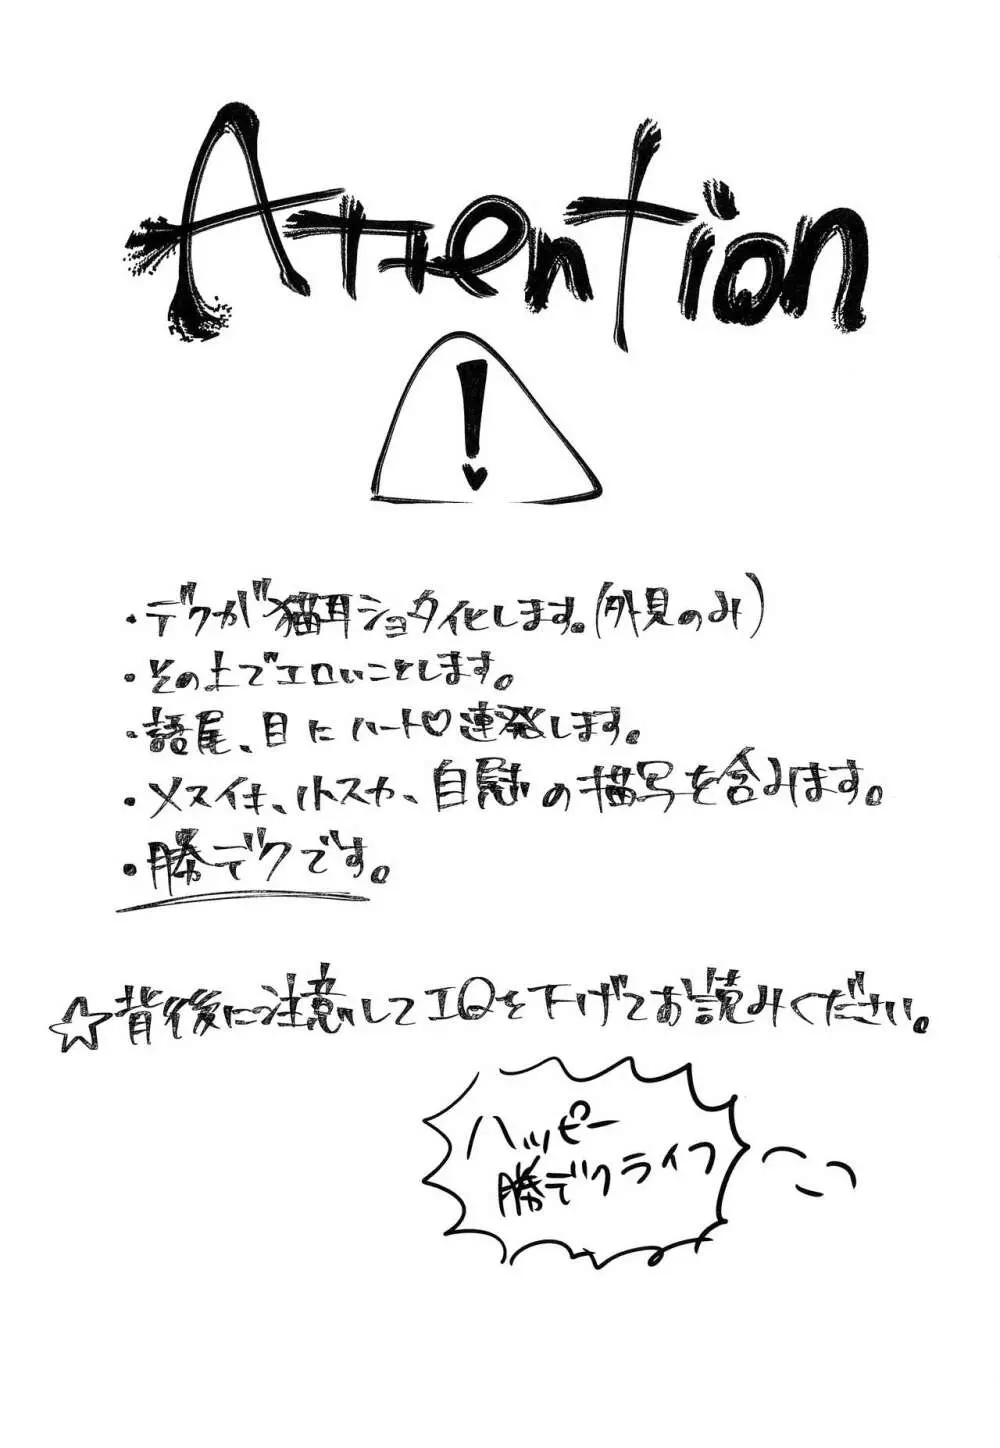 Attention
!
・デクが猫耳ショタ化します。(外見のみ)
・その上でエロいことします。
・語尾、目にハート♡連発します。
・メスイキ、潮スカ、自慰の描写を含みます。
・勝デクです。
☆背後に注意してIQを下げてお読みください。
ハッピー
勝デクライフ